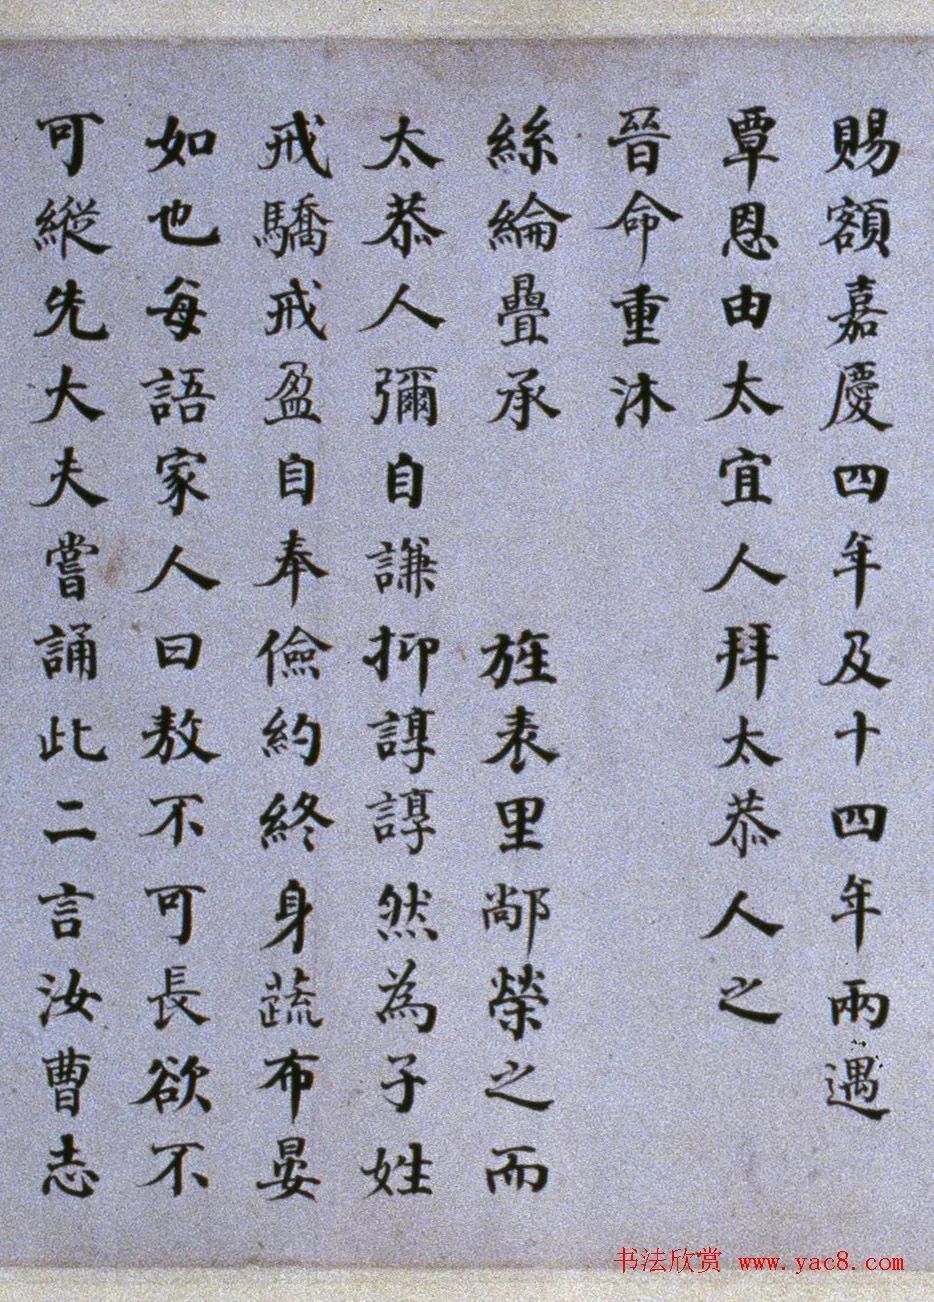 賜額嘉慶四年及十四年兩遇
覃恩由太宜人拜太恭人之
晉命重沐
絲綸疊承　旌表里鄰榮之而
太恭人彌自謙抑諄諄然為子姓
戒驕戒盈自奉儉約終身蔬布晏
如也每語家人曰敖不可長欲不
可縱先大夫嘗誦此二言汝曹志
书法欣赏 www.yac8.com